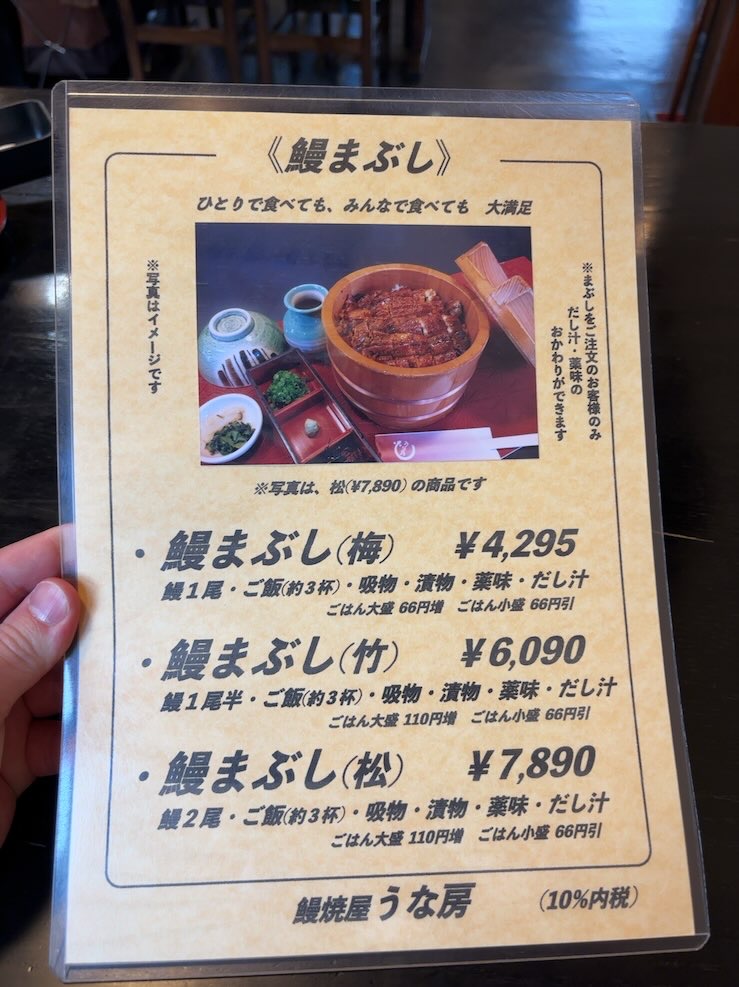 《鰻まぶし》
ひとりで食べても、みんなで食べても 大満足
※写真はイメージです
※まぶしをご注文のお客様のみ
だし汁・薬味の
おかわりができます
※写真は、松(¥7,890)の商品です
・鰻まぶし(梅) ¥4,295
鰻1尾・ご飯(約3杯)・吸物・漬物・薬味・だし汁
ごはん大盛 66円増 ごはん小盛 66円引
・鰻まぶし(竹) ¥6,090
鰻1尾半・ご飯(約3杯)・吸物・漬物・薬味・だし汁
ごはん大盛 110円増 ごはん小盛 66円引
・鰻まぶし(松) ¥7,890
鰻2尾・ご飯(約3杯)・吸物・漬物・薬味・だし汁
ごはん大盛 110円増 ごはん小盛 66円引
鰻焼屋 うな房 (10%内税)